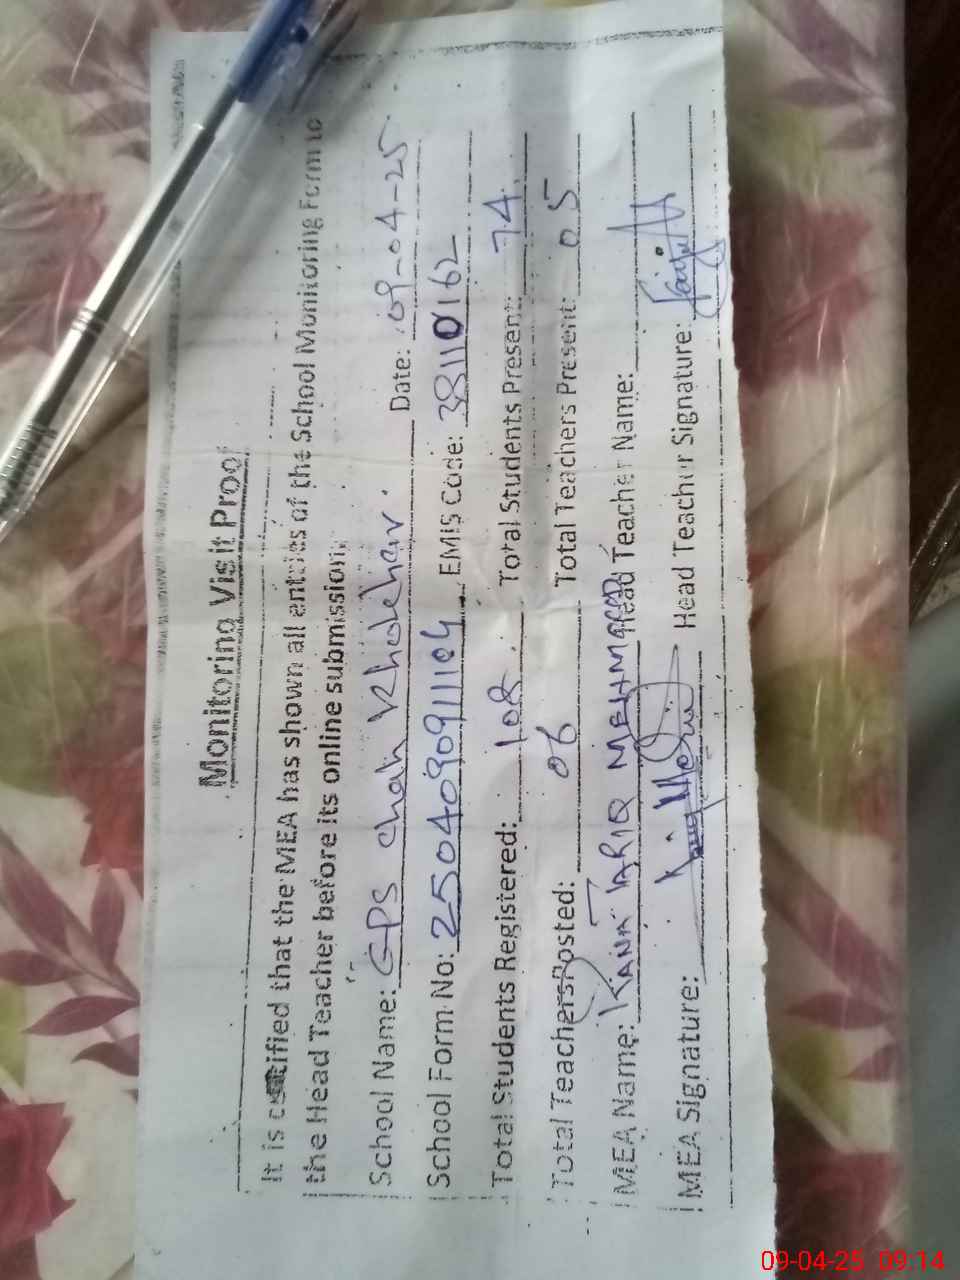 Monitoring Visit Proof
It is certified that the MEA has shown all entries of the School Monitoring Form to
the Head Teacher before its online submission.
School Name: GPS Chah Khokhar. Date: 09-04-25
School Form No: 2504090911104 EMIS Code: 38110162
Total Students Registered: 108. Total Students Present: 74
Total Teachers Posted: 06 Total Teachers Present: 05
MEA Name: RANA TARIQ MEHMOOD Head Teacher Name:
MEA Signature: Head Teacher Signature:
09-04-25 09:14